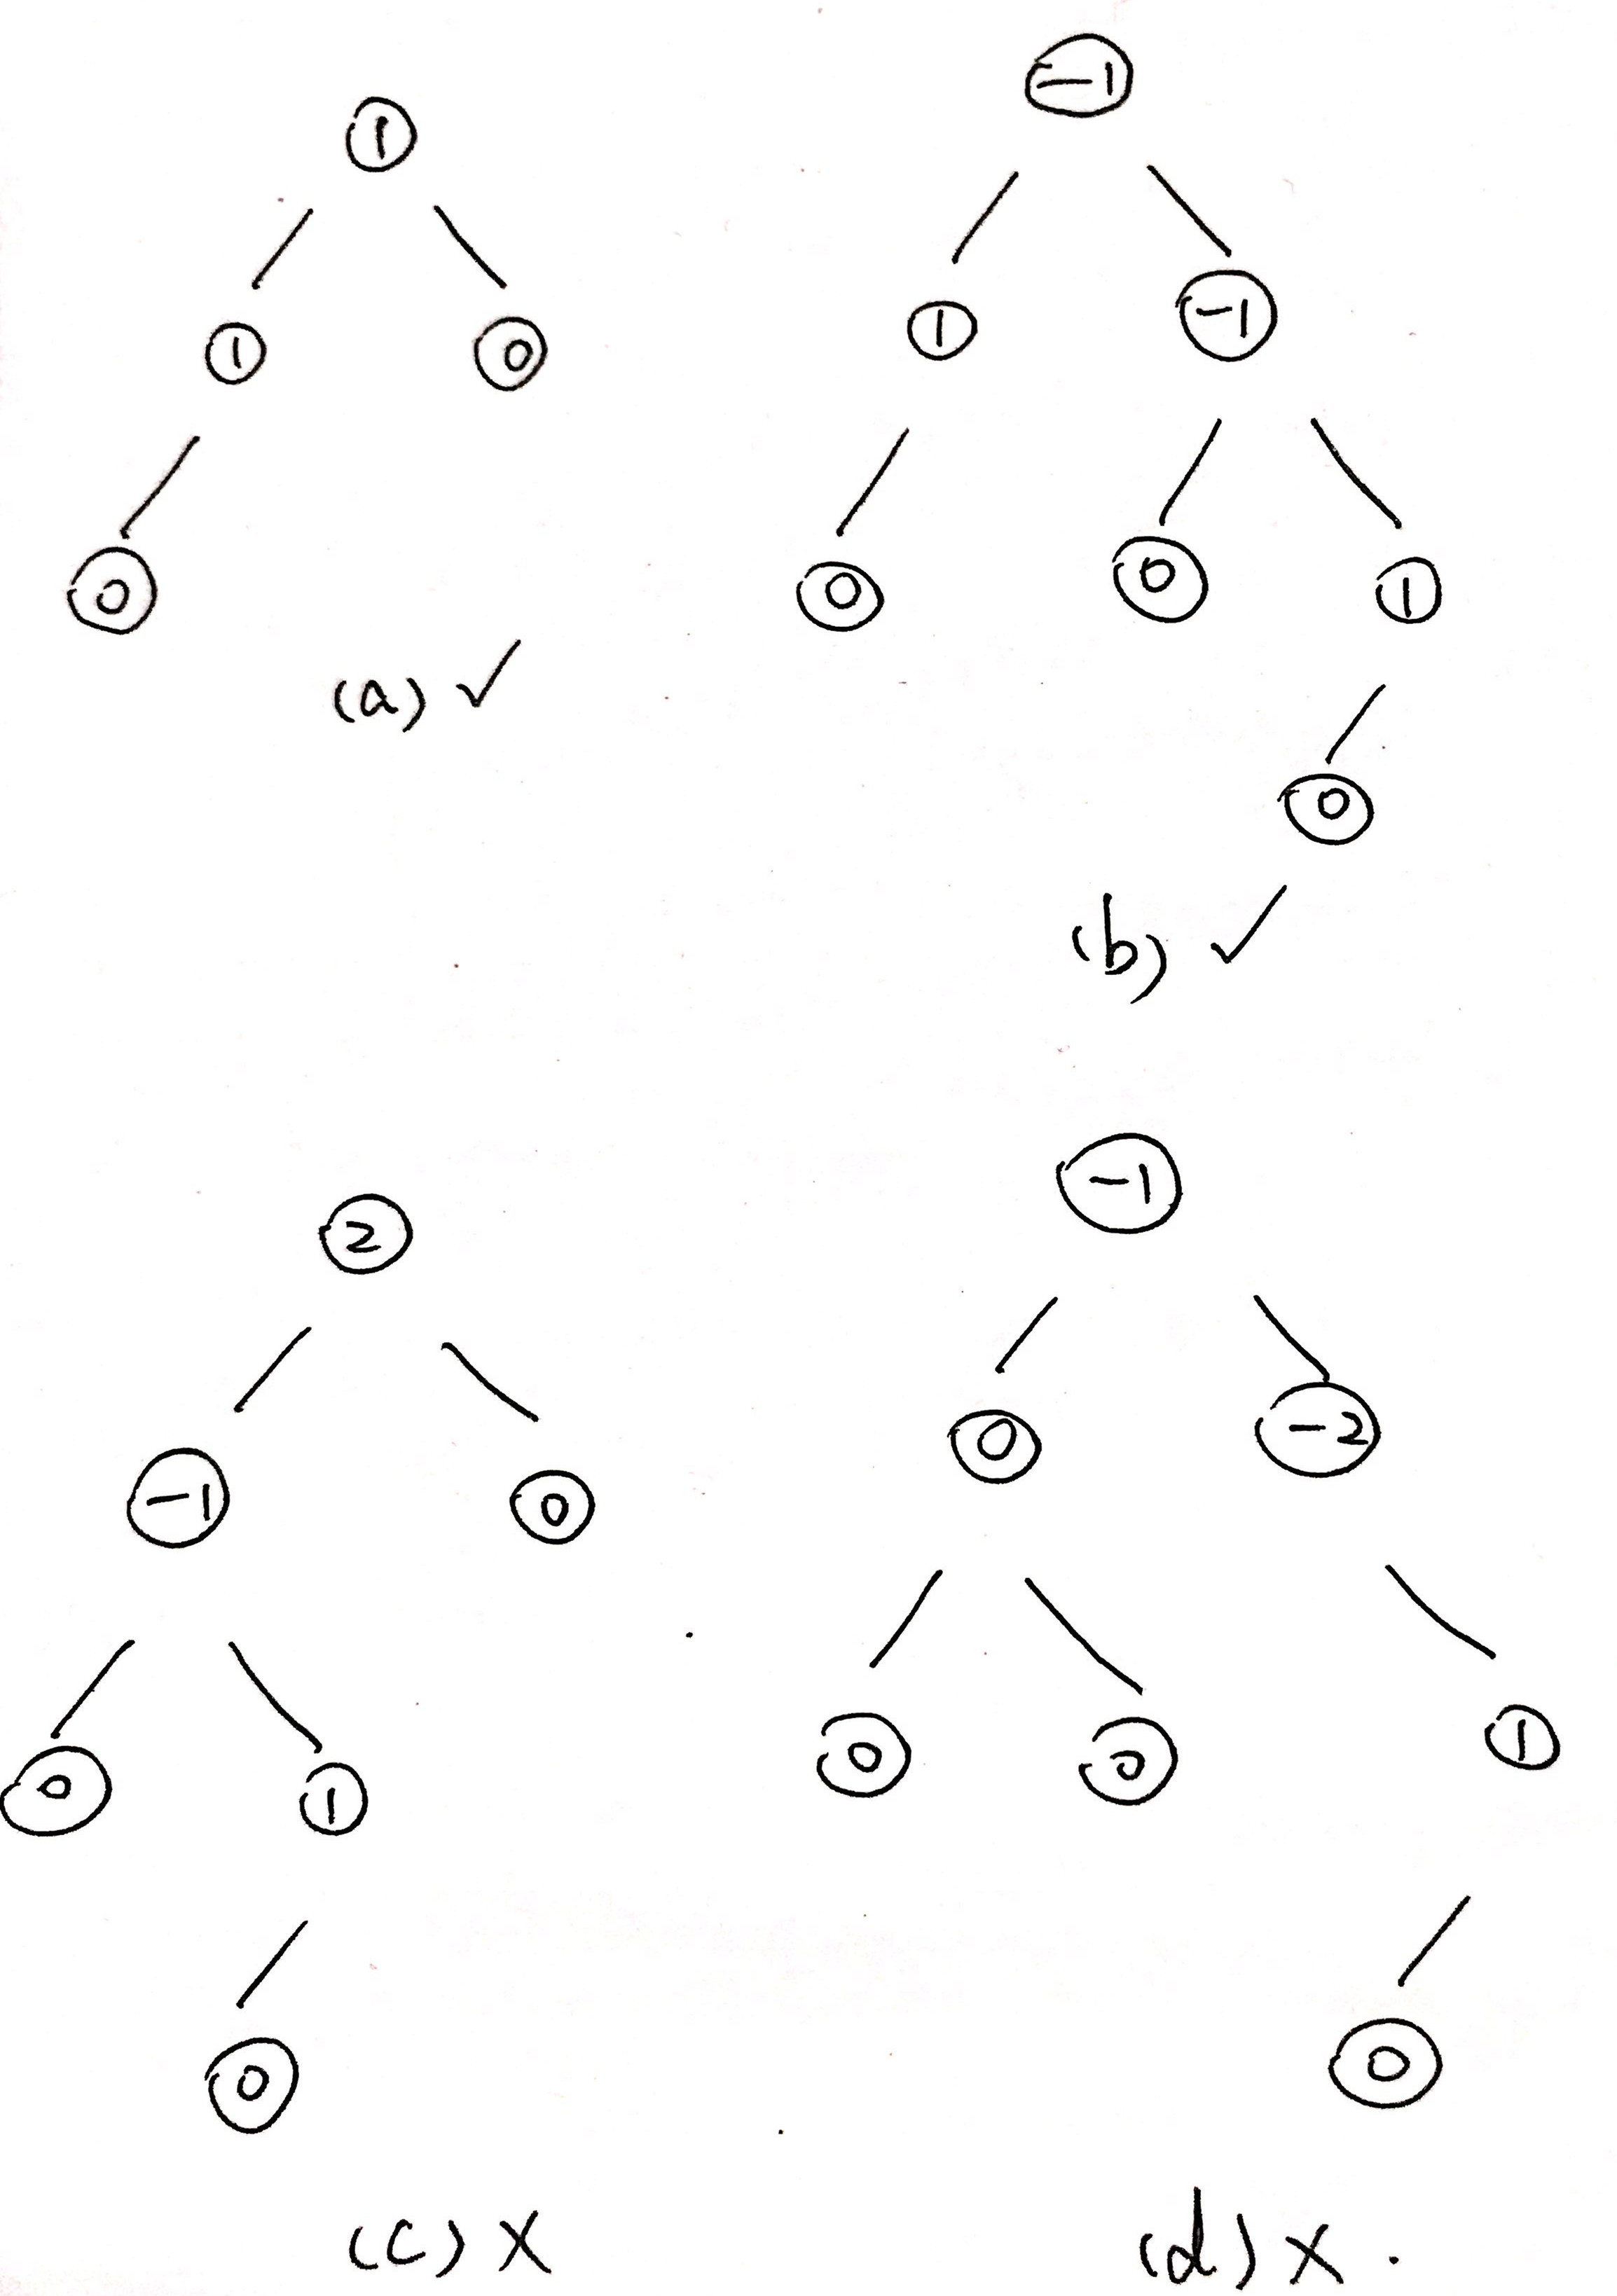 1
1 0
0
(a) ✓
-1
1 -1
0 0 1
0
(b) ✓
2
-1 0
0 1
0
(c) ×
-1
0 -2
0 0 1
0
(d) ×.